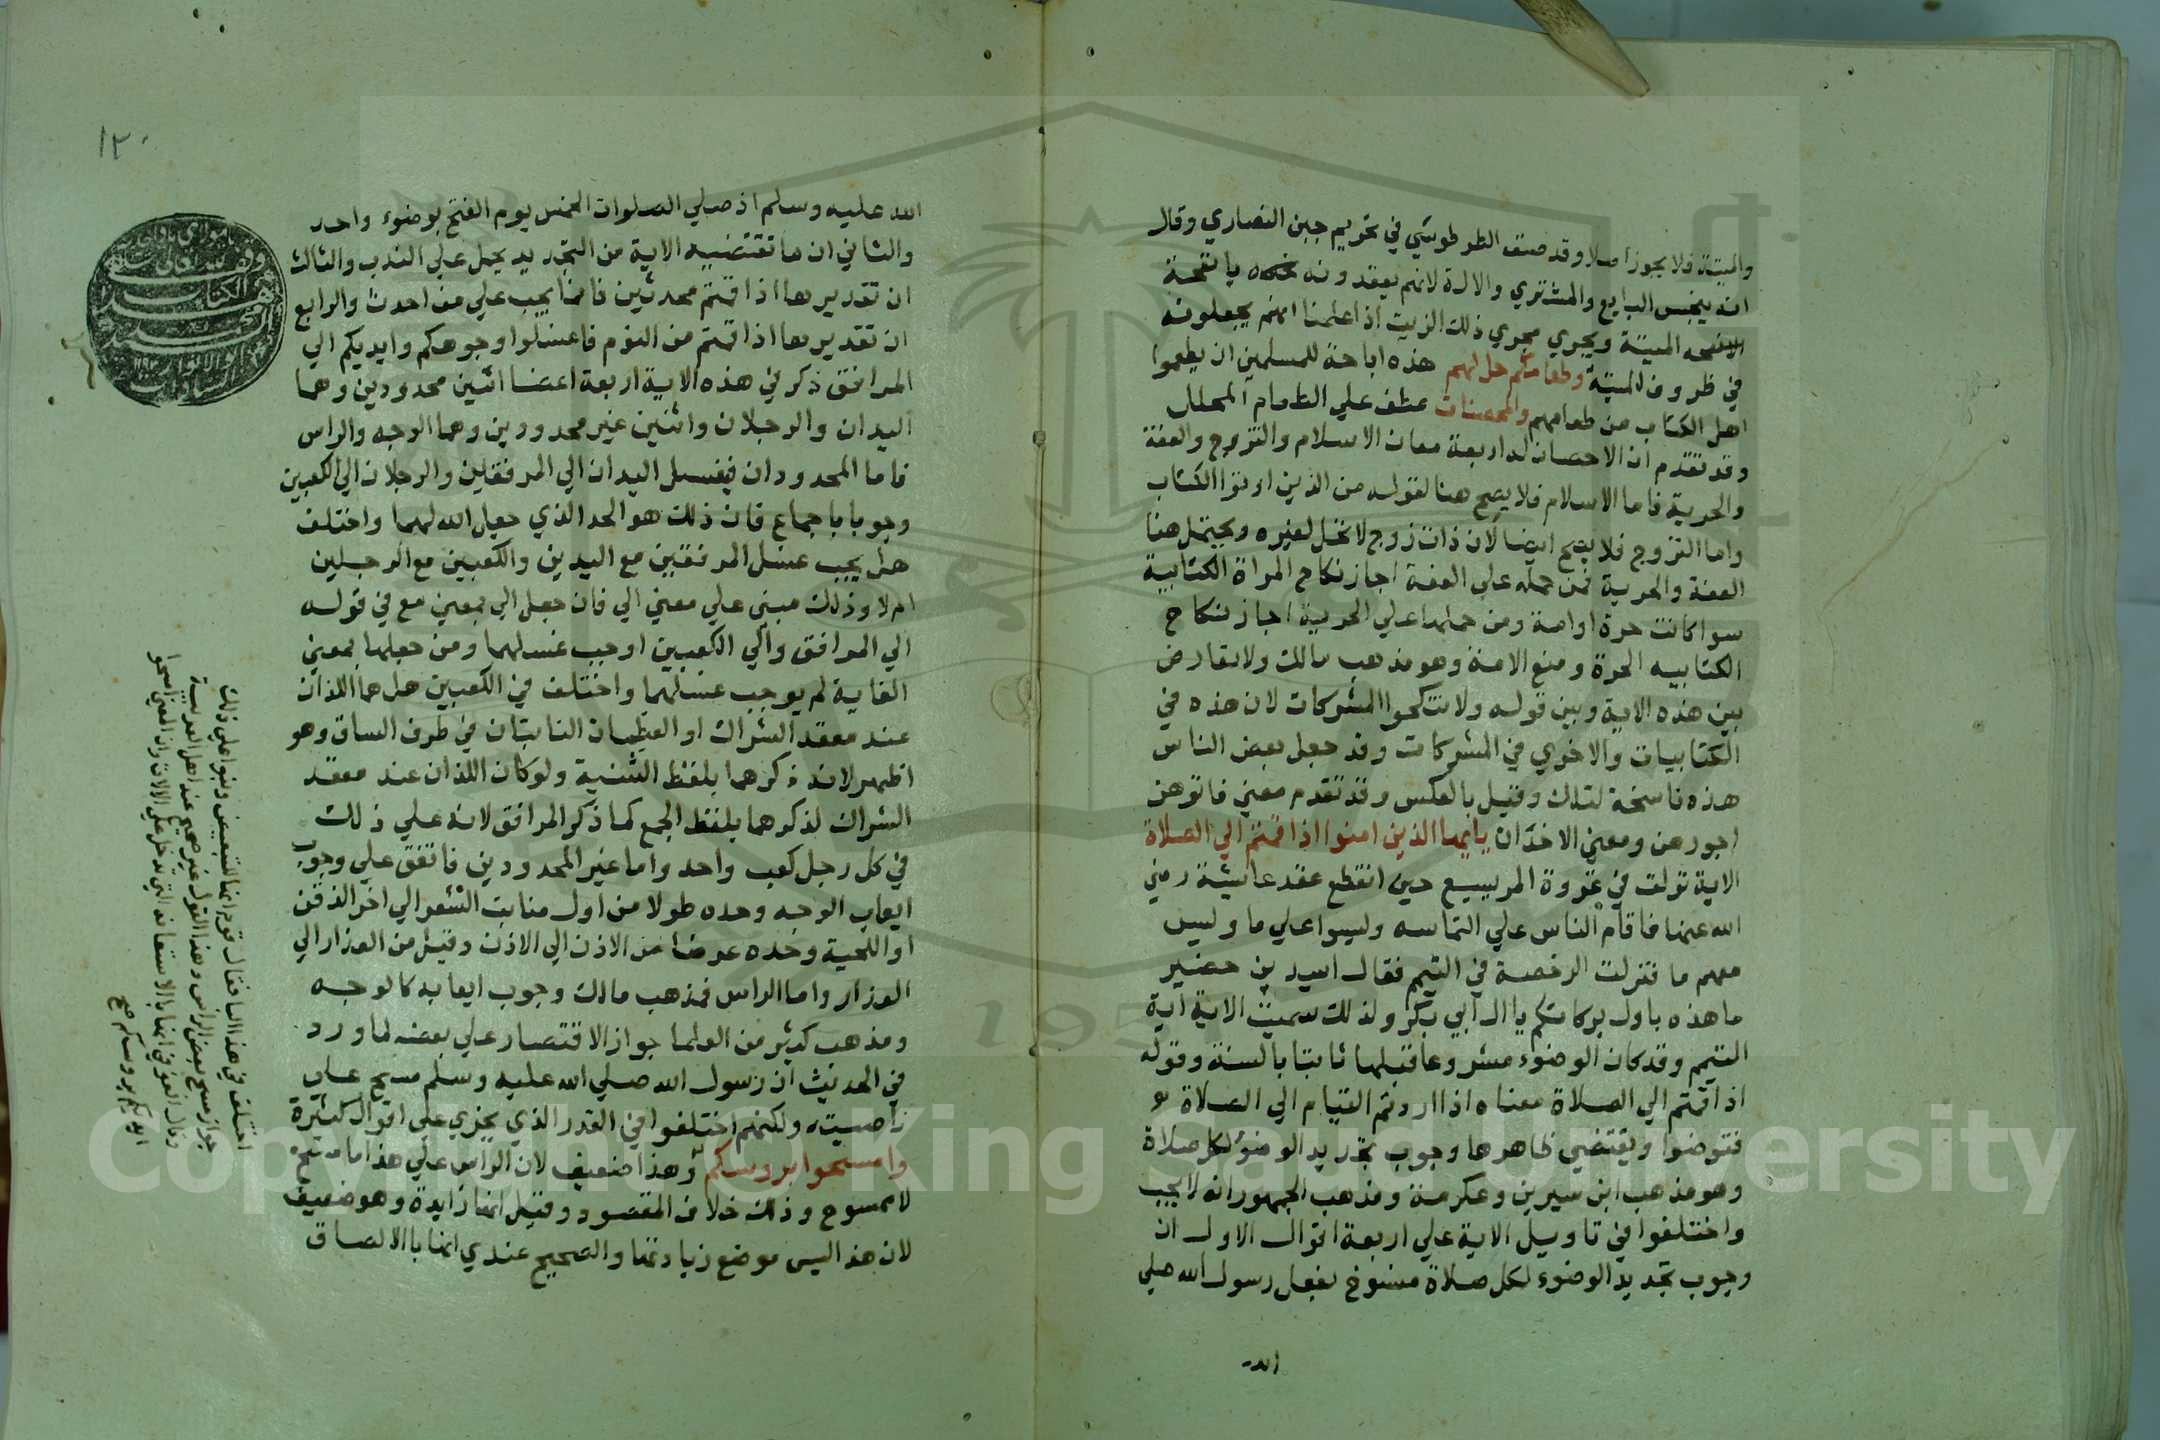 والميتة فلا يجوز اصلا وقد صنف الطرطوشي في تحريم جبن النصاري وقال
انه ينجس البايع والمشتري والالة لانهم يعقدونه بانفحة
الميتة ويجري مجري ذلك الزيت اذا علمنا انهم يجعلونه
في ظروف الميتة وطعامكم حل لهم هذه اباحة للمسلمين ان يطعموا
اهل الكتاب من طعامهم والمحصنات عطف علي الطعام المحلل
وقد تقدم ان الاحصان له اربعة معان الاسلام والتزوج والعفة
والحرية فاما الاسلام فلا يصح هنا لقوله من الذين اوتوا الكتاب
واما التزوج فلا يصح ايضا لان ذات زوج لا تحل لغيره ويحتمل هنا
العفة والحرية فمن حمله علي العفة اجاز نكاح المراة الكتابية
سوا كانت حرة او امة ومن حملها علي الحرية اجاز نكاح
الكتابيه الحرة ومنع الامة وهو مذهب مالك ولا تعارض
بين هذه الاية وبين قوله ولا تنكحوا المشركات لان هذه في
الكتابيات والاخري في المشركات وقد جعل بعض الناس
هذه ناسخة لتلك وقيل بالعكس وقد تقدم معني فاتوهن
اجورهن ومعني الاخدان يايها الذين امنوا اذا قمتم الي الصلاة
الاية نزلت في غزوة المريسيع حين انقطع عقد عايشة رضي
الله عنها فاقام الناس علي التماسه وليسوا علي ما وليس
معهم ما فنزلت الرخصة في التيمم فقال اسيد بن حضير
ما هذه باول بركاتكم يا ال ابي بكر ولذلك سميت الاية اية
التيمم وقد كان الوضوء مشروعا قبلها ثابتا بالسنة وقوله
اذا قمتم الي الصلاة معناه اذا اردتم القيام الي الصلاة
فتوضوا ويقتضي ظاهرها وجوب تجديد الوضوء لكل صلاة
وهو مذهب ابن سيرين وعكرمة ومذهب الجمهور انه لا يجب
واختلفوا في تاويل الاية علي اربعة اقوال الاول ان
وجوب تجديد الوضوء لكل صلاة منسوخ بفعل رسول الله صلي
الله
١٢٠
الله عليه وسلم اذ صلي الصلوات الخمس يوم الفتح بوضوء واحد
والثاني ان ما تقتضيه الاية من التجديد يحمل علي الندب والثالث
ان تقديرها اذا قمتم محدثين فانما يجب علي من احدث والرابع
ان تقديرها اذا قمتم من النوم فاغسلوا وجوهكم وايديكم الي
المرافق ذكر في هذه الاية اربعة اعضا اثنين محدودين وهما
اليدان والرجلان واثنين غير محدودين وهما الوجه والراس
فاما المحدودان فيغسل اليدان الي المرفقين والرجلان الي الكعبين
وجوبا باجماع فان ذلك هو الحد الذي جعل الله لهما واختلف
هل يجب غسل المرفقين مع اليدين والكعبين مع الرجلين
ام لا وذلك مبني علي معني الي فان جعل الي بمعني مع في قوله
الي المرافق والي الكعبين اوجب غسلهما ومن جعلها بمعني
الغاية لم يوجب غسلهما واختلف في الكعبين هل هما اللذان
عند معقد الشراك او العظمان الناتئان في طرف الساق وهو
اظهر لانه ذكرهما بلفظ التثنية ولو كان اللذان عند معقد
الشراك لذكرهما بلفظ الجمع كما ذكر المرافق لانه علي ذلك
في كل رجل كعب واحد واما غير المحدودين فاتفق علي وجوب
ايعاب الوجه وحده طولا من اول منابت الشعر الي اخر الذقن
او اللحية وحده عرضا من الاذن الي الاذن وقيل من العذار الي
العذار واما الراس فمذهب مالك وجوب ايعابه كالوجه
ومذهب كثير من العلما جواز الاقتصار علي بعضه لما ورد
في الحديث ان رسول الله صلي الله عليه وسلم مسح علي
ناصيته ولكنهم اختلفوا في القدر الذي يجزي علي اقوال كثيرة
وامسحوا بروسكم وهذا ضعيف لان الراس علي هذا ماسح
لا ممسوح وذلك خلاف المقصود وقيل انها زايدة وهو ضعيف
لان هذا ليس موضع زيادتها والصحيح عندي انها باالالصاق
اختلف في هذا البا فقال قوم انها للتبعيض وبنوا علي ذلك
جواز مسح بعض الراس وهذا القول غير صحيح عند اهل العربية
وقال القرافي انها باالاستعانة التي تدخل علي الالات وان المعني امسحوا
ايديكم بروسكم صح
Copyright © King Saud University